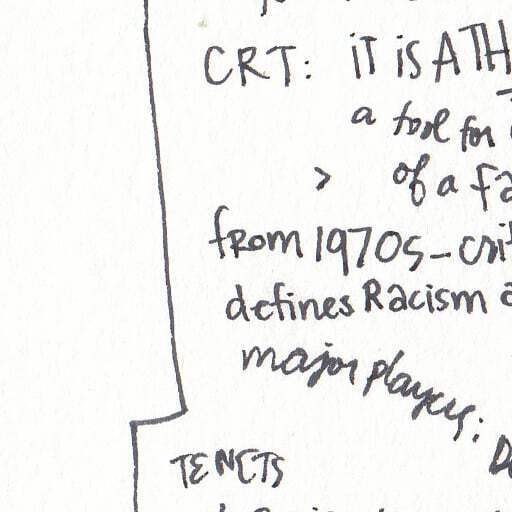 CRT: iT iS A TH
a tool for
> of a fa
from 1970s - crit
defines Racism a
major players: D
TENETS